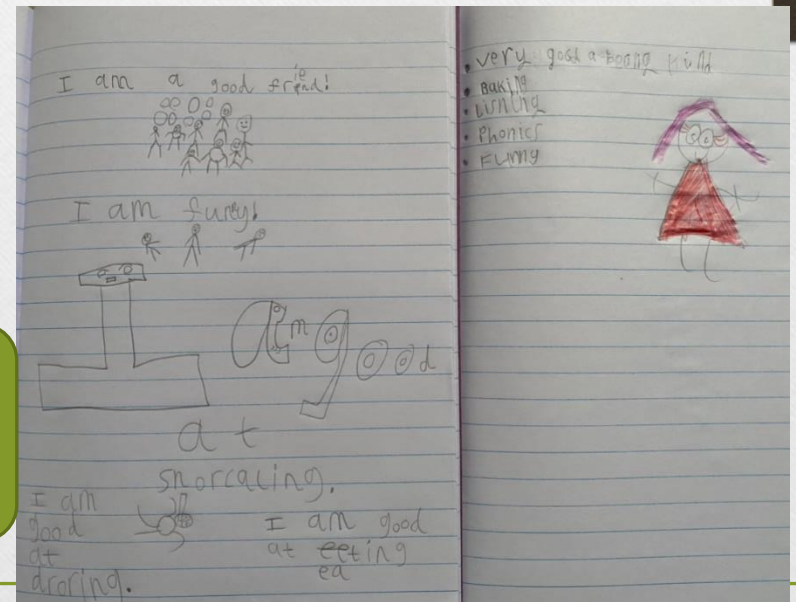 I am a good friend!
I am funey!
I am good
at
snorcaling.
I am
good
at
droring.
I am good
at eeting
ea
• very good a being kind
• Baking
• Lisning
• Phonics
• Funny